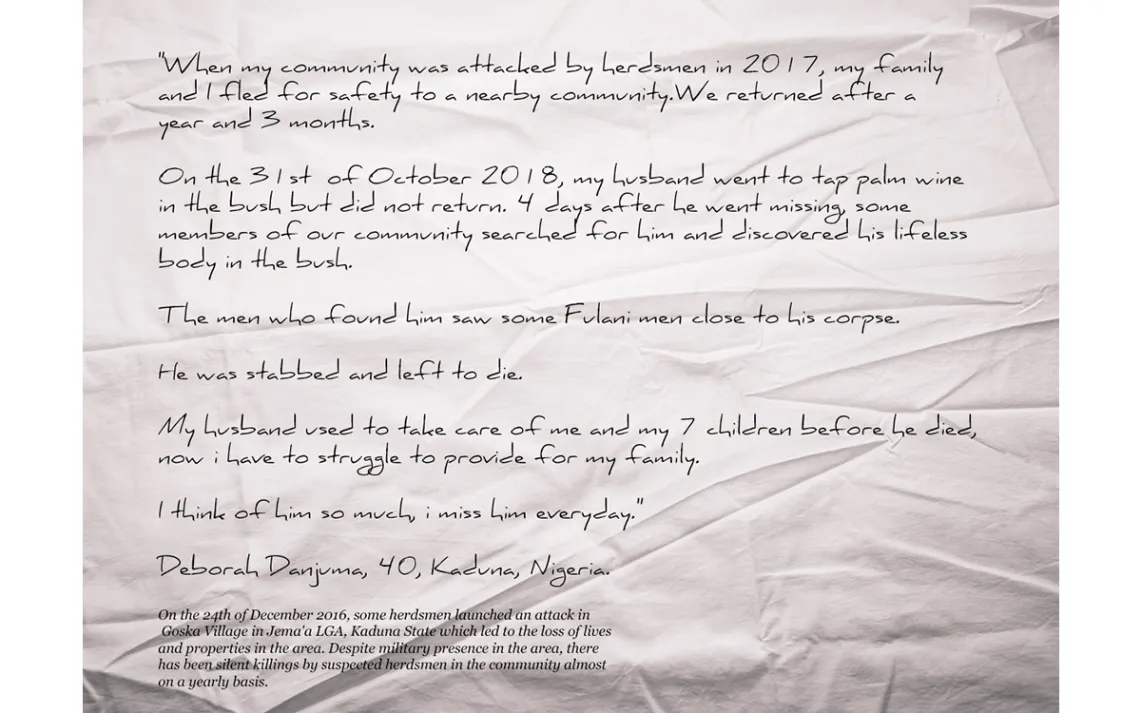 "When my community was attacked by herdsmen in 2017, my family
and I fled for safety to a nearby community.We returned after a
year and 3 months.
On the 31st of October 2018, my husband went to tap palm wine
in the bush but did not return. 4 days after he went missing, some
members of our community searched for him and discovered his lifeless
body in the bush.
The men who found him saw some Fulani men close to his corpse.
He was stabbed and left to die.
My husband used to take care of me and my 7 children before he died,
now i have to struggle to provide for my family.
I think of him so much, i miss him everyday."
Deborah Danjuma, 40, Kaduna, Nigeria.
On the 24th of December 2016, some herdsmen launched an attack in
Goska Village in Jema'a LGA, Kaduna State which led to the loss of lives
and properties in the area. Despite military presence in the area, there
has been silent killings by suspected herdsmen in the community almost
on a yearly basis.